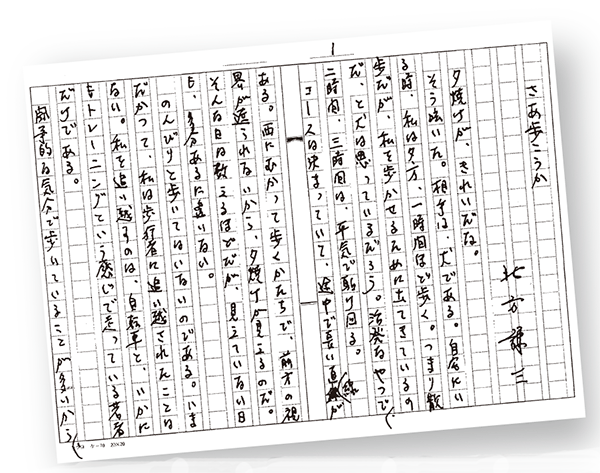 さあ歩こうか
北方謙三
夕焼けが、きれいだな。
そう呟いた。相手は、犬である。自宅にい
る時、私は夕方、一時間ほど歩く。つまり散
歩だが、私を歩かせるために出てきているの
だ、と犬は思っているだろう。活発なやつで、
二時間、三時間は、平気で駈け回る。
コースは決まっていて、途中で長い直線が
1
ある。西にむかって歩くかたちで、前方の視
界が遮られないから、夕焼けが見えるのだ。
そんな日は数えるほどだが、見えていない日
も、多分あるに違いない。
のんびりと歩いてはいないのである。いま
だかつて、私は歩行者に追い越されたことは
ない。私を追い越すのは、自転車と、いかに
もトレーニングという感じで走っている若者
だけである。
闘争的な気分で歩いていることが多いから
ケー10 20×20